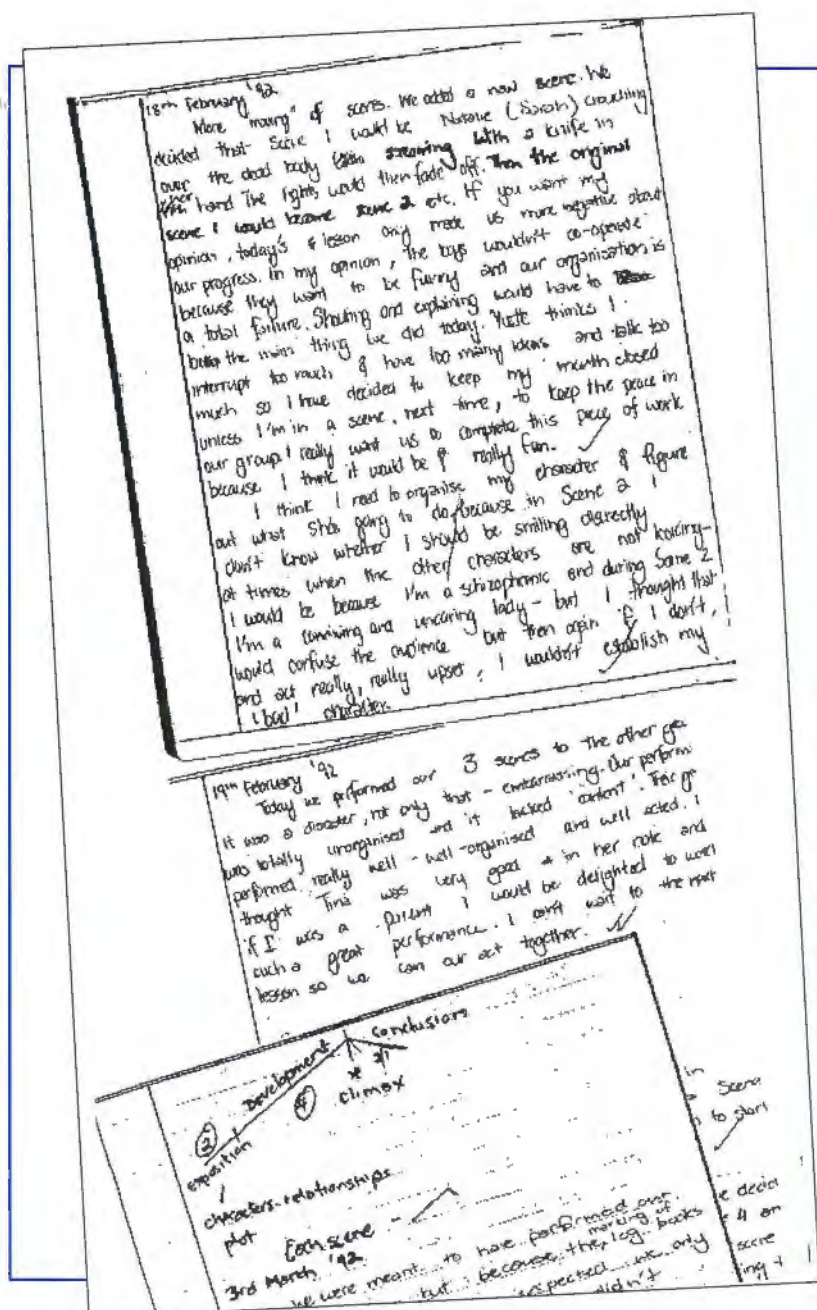 18th February '92
More "marring" of scenes. We added a new scene. We
decided that Scene 1 would be Natalie (Sarah) crouching
over the dead body with a knife in
her hand The lights would then fade off. Then the original
scene 1 would become scene 2 etc. If you want my
opinion, today's lesson only made us more negative about
our progress. In my opinion, the boys wouldn't co-operate
because they want to be funny and our organisation is
a total failure. Shouting and explaining would have to
be the main thing we did today. Yvette thinks I
interrupt too much & have too many ideas and talk too
much so I have decided to keep my mouth closed
unless I'm in a scene, next time, to keep the peace in
our group. I really want us to complete this piece of work
because I think it would be really fun.
I think I need to organise my character & figure
out what she's going to do because in Scene 2 I
don't know whether I should be smiling discreetly
at times when the other characters are not looking-
I would be because I'm a schizophrenic and during Scene 2
I'm a conniving and uncaring lady - but I thought that
would confuse the audience but then again if I don't,
and act really, really upset, I wouldn't establish my
'bad' character.
19th February '92
Today we performed our 3 scenes to the other
It was a disaster, not only that - embarrassing. Our perform
was totally unorganised and it lacked 'content'. Their
performed really well - well-organised and well acted. I
thought Tina was very good in her role and
if I was a parent I would be delighted to
such a great performance. I can't wait to the next
lesson so we can our act together.
Conclusion
Development
Climax
2
4
exposition
characters-relationships
plot
Each scene
3rd March '92
We were meant to have performed our
but because the marking of log books
expected we only
didn't
in
Scene
to start
decid
4 on
scene
ing +